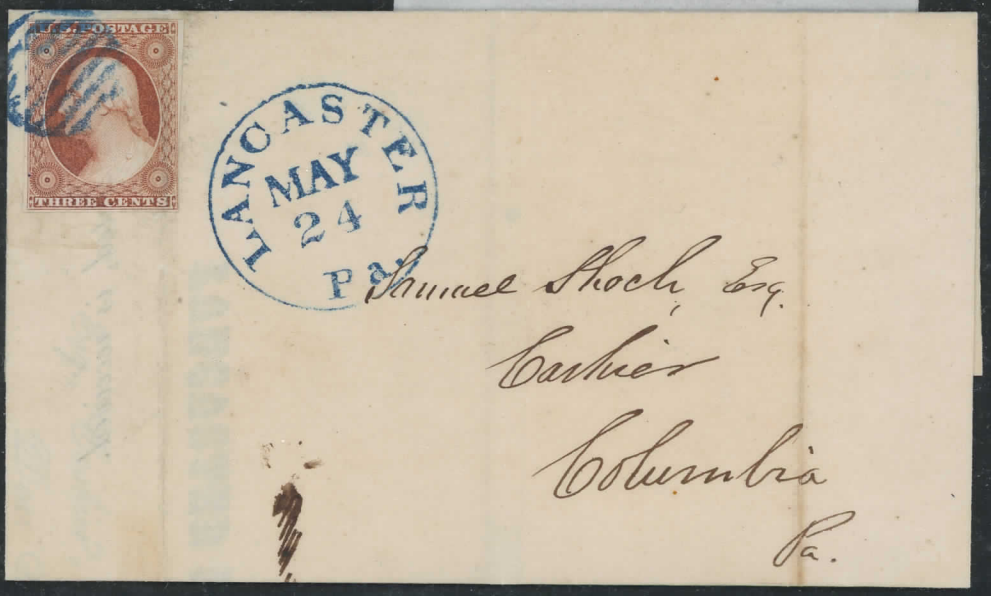 U.S. POSTAGE
THREE CENTS
LANCASTER
MAY
24
Pa.
Samuel Shoch, Esq.
Cashier
Columbia
Pa.